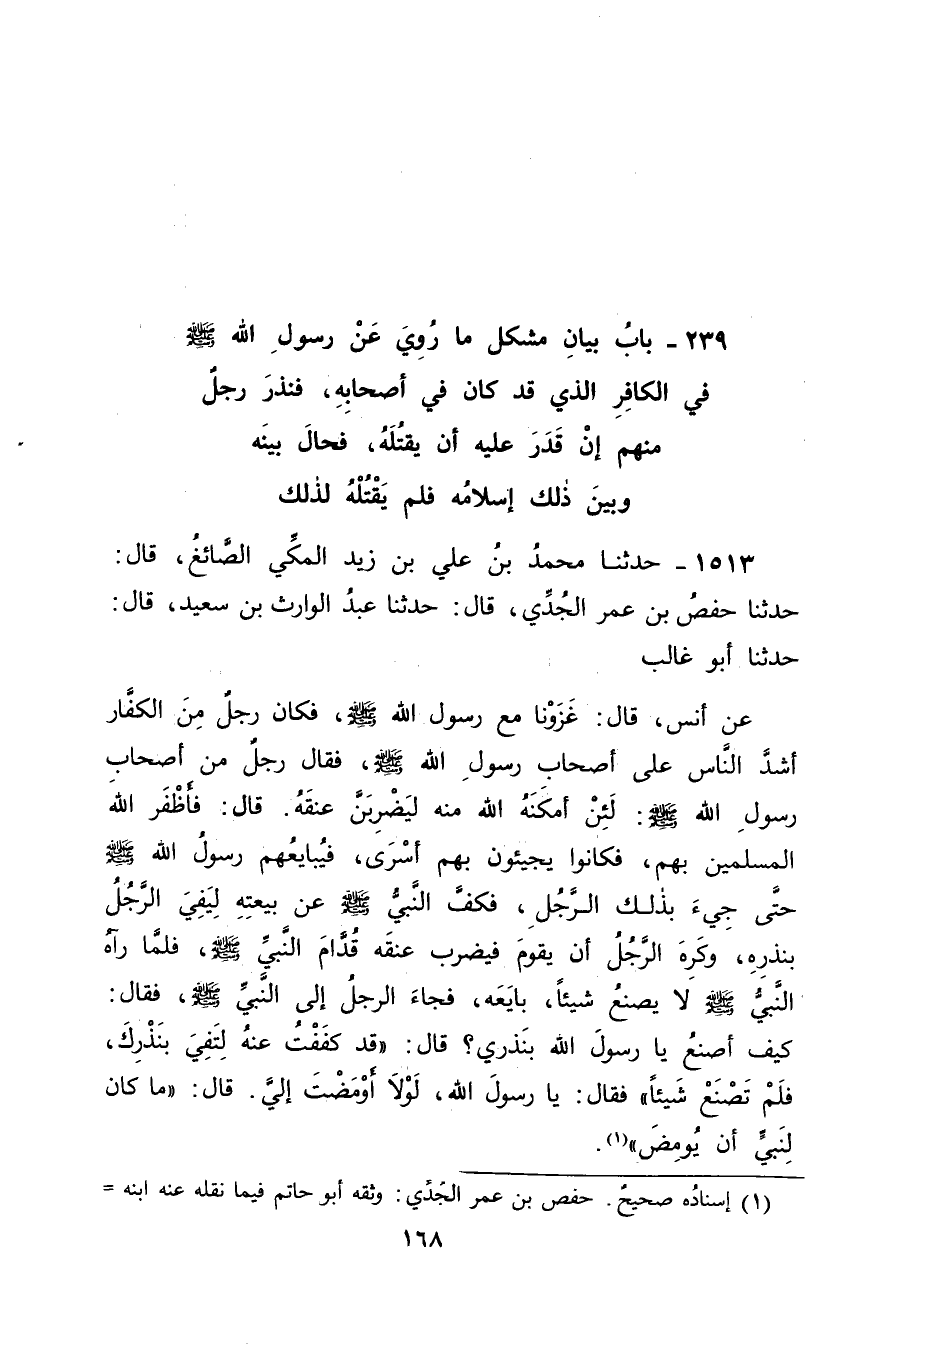 ٢٣٩ ـ بابُ بيانِ مشكل ما رُوِيَ عَنْ رسولِ الله ﷺ
في الكافِرِ الذي قد كان في أصحابِهِ، فنذرَ رجلٌ
منهم إنْ قَدَرَ عليه أن يقتُلَهُ، فحالَ بينَه
وبينَ ذٰلك إسلامُه فلم يَقْتُلْهُ لذٰلك
١٥١٣ ـ حدثنـا محمدُ بنُ علي بن زيد المكِّي الصَّائغُ، قال:
حدثنا حفصُ بن عمر الجُدِّي، قال: حدثنا عبدُ الوارث بن سعيد، قال:
حدثنا أبو غالب
عن أنس، قال: غَزَوْنا مع رسول الله ﷺ، فكان رجلٌ مِنَ الكفَّار
أشدَّ النَّاس على أصحابِ رسولِ الله ﷺ، فقال رجلٌ من أصحابِ
رسولِ الله ﷺ: لَئِنْ أمكنَهُ الله منه ليَضْرِبَنَّ عنقَهُ. قال: فأَظْفَر الله
المسلمين بهم، فكانوا يجيئون بهم أسْرَى، فيُبايعُهم رسولُ الله ﷺ
حتَّى جِيءَ بذٰلـك الـرَّجُلِ، فكفَّ النَّبيُّ ﷺ عن بيعتِهِ لِيَفِيَ الرَّجُلُ
بنذرِه، وكَرِهَ الرَّجُلُ أن يقومَ فيضرب عنقَه قُدَّامَ النَّبيِّ ﷺ، فلمَّا رآهُ
النَّبيُّ ﷺ لا يصنعُ شيئاً، بايَعَه، فجاءَ الرجلُ إلى النَّبيِّ ﷺ، فقال:
كيف أصنعُ يا رسولَ الله بنَذري؟ قال: «قد كفَفْتُ عنهُ لِتَفِيَ بنَذْرِكَ،
فلَمْ تَصْنَعْ شَيئاً» فقال: يا رسولَ الله، لَوْلَا أَوْمَضْتَ إليَّ. قال: «ما كان
لِنَبيٍّ أن يُومِضَ»(١).
(١) إسنادُه صحيحٌ. حفص بن عمر الجُدِّي: وثقه أبو حاتم فيما نقله عنه ابنه =
١٦٨